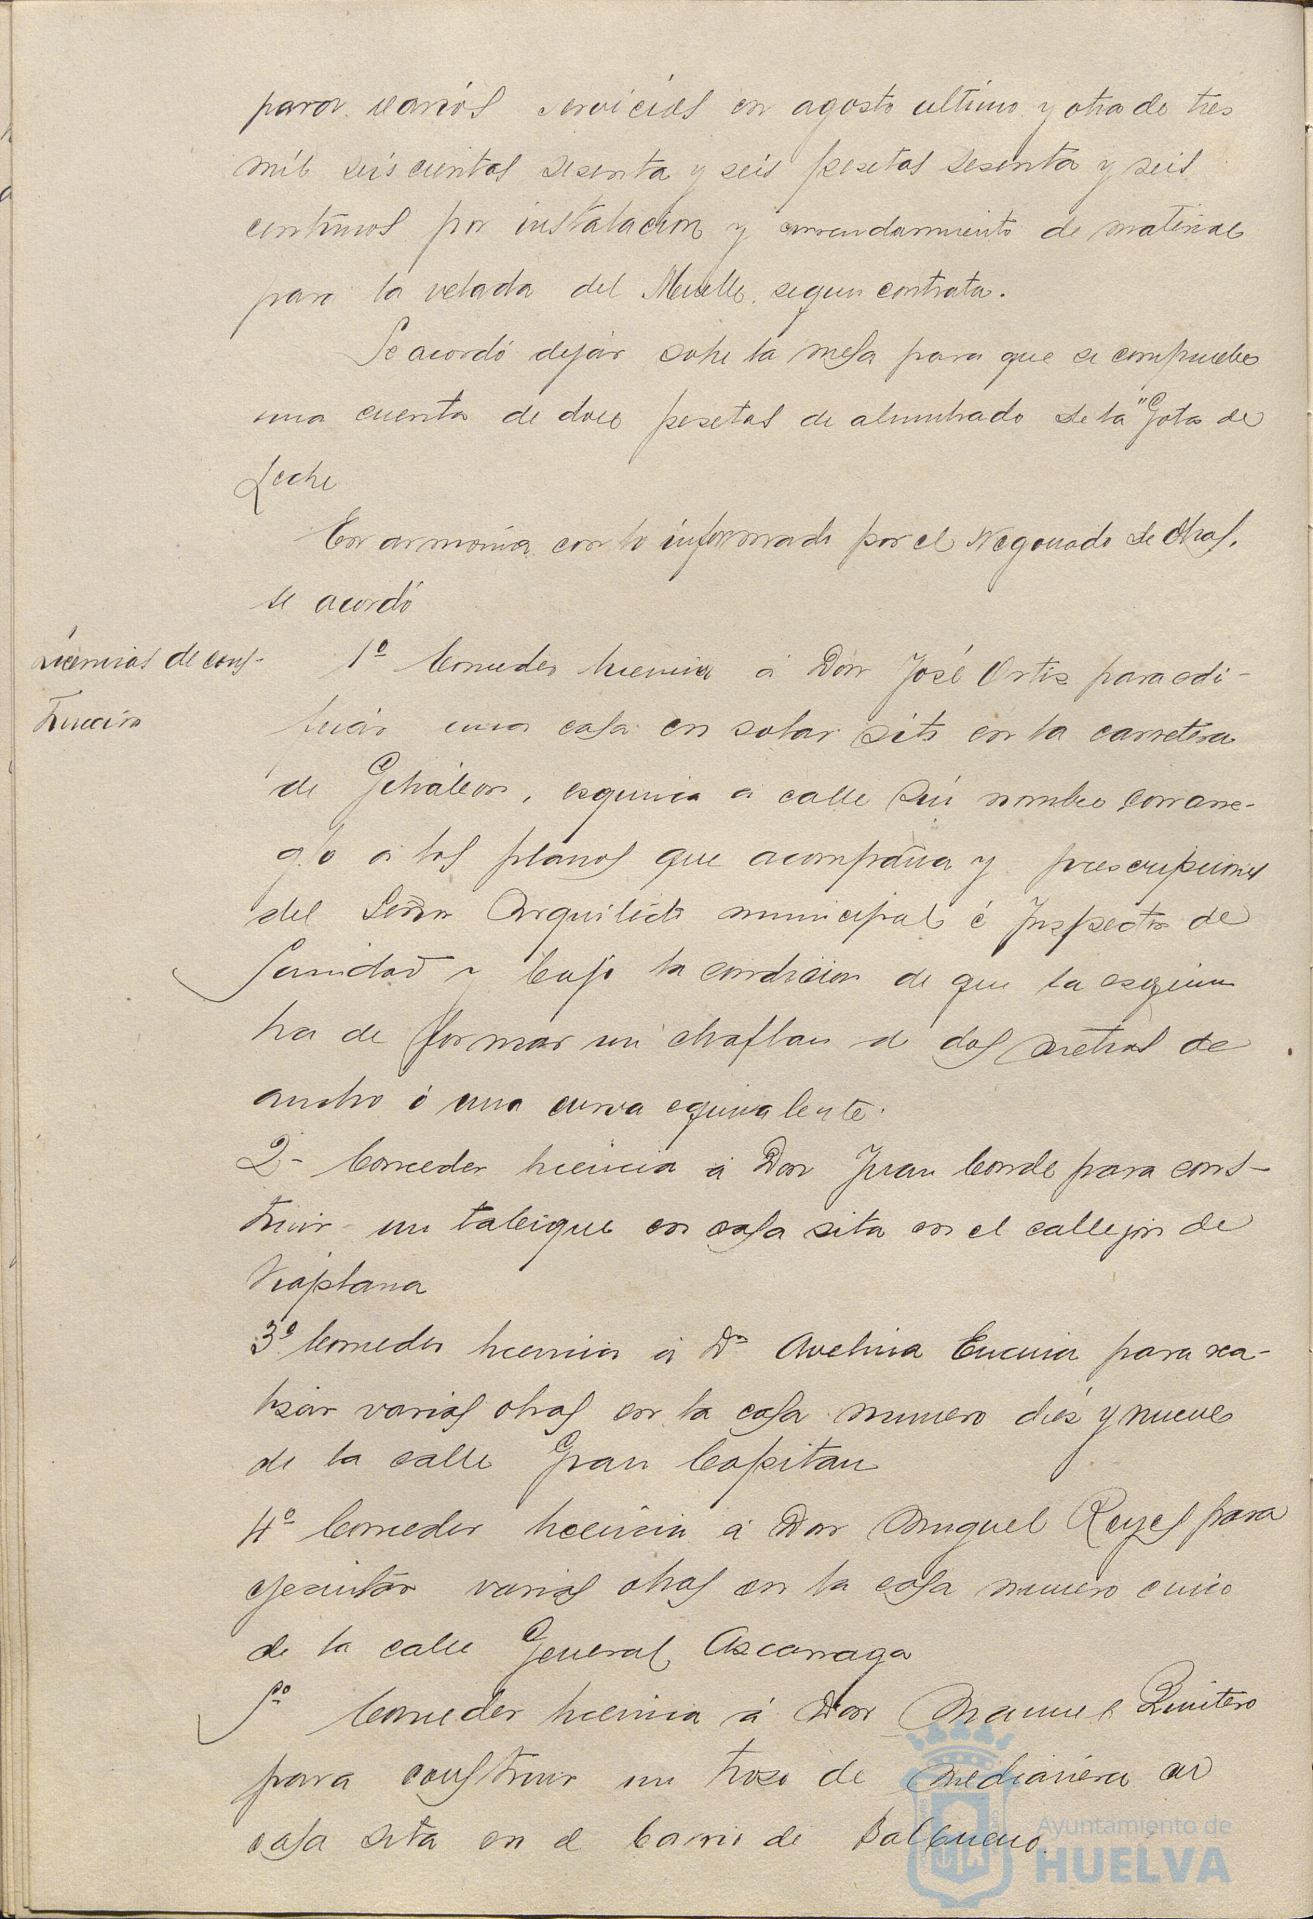 para varios servicios en agosto ultimo y otra de tres
mil seis cientas sesenta y seis pesetas sesenta y seis
centimos por instalacion y arrendamiento de material
para la velada del Muelle, segun contrata.
Se acordó dejar sobre la mesa para que se compruebe
una cuenta de doce pesetas de alumbrado de la "Gota de
Leche
En armonia con lo informado por el Negociado de Obras,
se acordó
Licencias de cons-
trucción
1º Conceder licencia á Don José Ortiz para edi-
ficar una casa en solar sito en la carretera
de Gibraleon, esquina á calle sin nombre, con arre-
glo á los planos que acompaña y prescripciones
del Señor Arquitecto municipal é Inspector de
Sanidad y bajo la condicion de que la esquina
ha de formar un chaflan de dos metros de
ancho ó una curva equivalente.
2- Conceder licencia á Don Juan Conde para cons-
truir un tabique en casa sita en el callejon de
3º Conceder licencia á Dª Avelina Encina para rea-
lizar varias obras en la casa numero diez y nueve
de la calle Gran Capitan
4º Conceder licencia á Don Miguel Reyes para
ejecutar varias obras en la casa numero cinco
de la calle General Azcarraga
5º Conceder licencia á Don Manuel Quintero
para construir un trozo de medianera en
casa sita en el barrio de Balbueno.
Ayuntamiento de
HUELVA